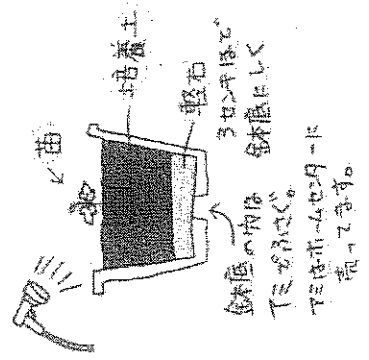 苗
培養土
軽石
3センチほど
鉢底にしく
鉢底の穴は
アミでふさぐ。
アミはホームセンターに
売ってます。